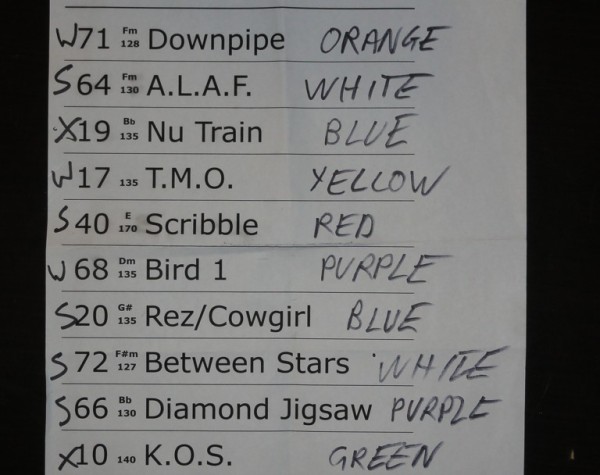 W71 Fm 128 Downpipe ORANGE
S64 Fm 130 A.L.A.F. WHITE
X19 Bb 135 Nu Train BLUE
W17 135 T.M.O. YELLOW
S40 E 170 Scribble RED
W68 Dm 135 Bird 1 PURPLE
S20 G# 135 Rez/Cowgirl BLUE
S72 F#m 127 Between Stars WHITE
S66 Bb 130 Diamond Jigsaw PURPLE
X10 140 K.O.S. GREEN